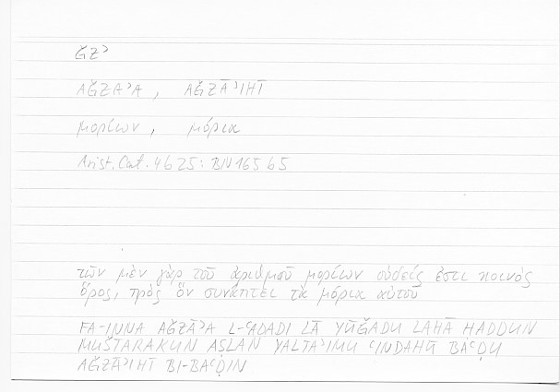 ǦZʾ
AǦZĀʾA, AǦZĀʾIHĪ
μορίων, μόρια
Arist. Cat. 4b25: BN 165b5
τῶν μὲν γὰρ τοῦ ἀριθμοῦ μορίων οὐδείς ἐστι κοινὸς
ὅρος, πρὸς ὃν συνάπτει τὰ μόρια αὐτοῦ
FA-INNA AǦZĀʾA L-ʿADADI LĀ YŪǦADU LAHĀ ḤADDUN
MUŠTARAKUN AṢLAN YALTAʾIMU ʿINDAHŪ BAʿḌU
AǦZĀʾIHĪ BI-BAʿḌIN